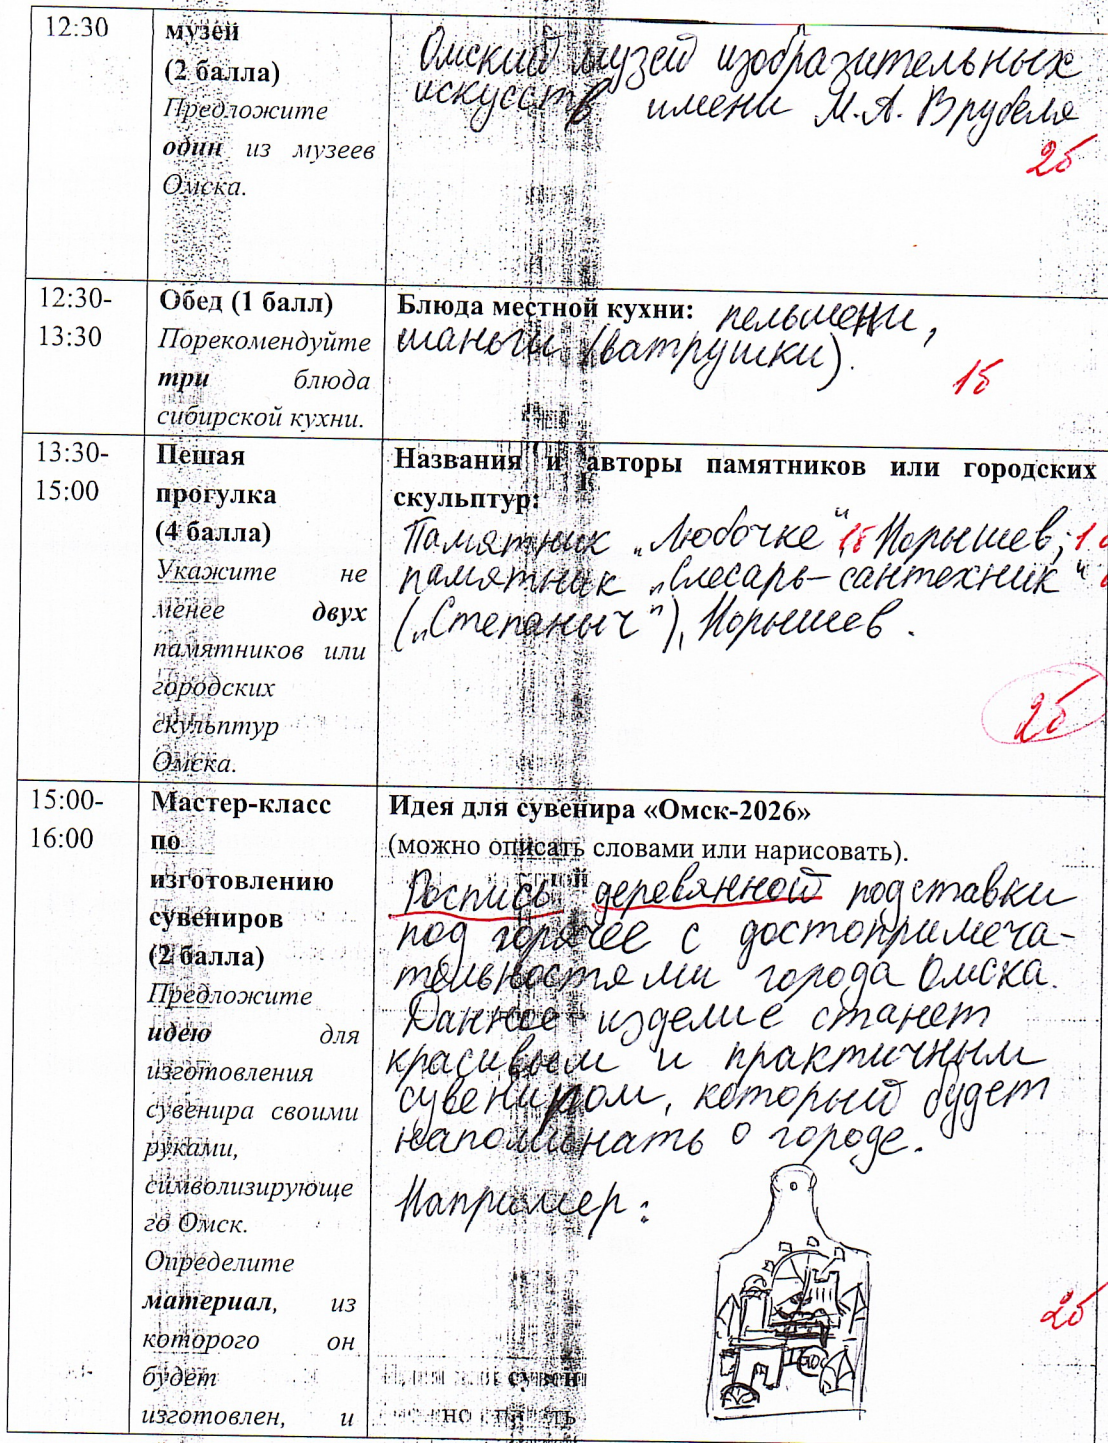 12:30
музей
(2 балла)
Предложите
один из музеев
Омска.
Омский музей изобразительных
искусств имени М.А. Врубеля
2б
12:30-
13:30
Обед (1 балл)
Порекомендуйте
три блюда
сибирской кухни.
Блюда местной кухни: пельмени,
шаньги (ватрушки).
1б
13:30-
15:00
Пешая
прогулка
(4 балла)
Укажите не
менее двух
памятников или
городских
скульптур
Омска.
Названия и авторы памятников или городских
скульптур:
Памятник „Любочке“, 1б Норышев; 1
памятник „Слесарь-сантехник“
(„Степаныч“), Норышев.
2б
15:00-
16:00
Мастер-класс
по
изготовлению
сувениров
(2 балла)
Предложите
идею для
изготовления
сувенира своими
руками,
символизирующе
го Омск.
Определите
материал, из
которого он
будет
изготовлен, и
Идея для сувенира «Омск-2026»
(можно описать словами или нарисовать).
Роспись деревянной подставки
под горячее с достопримеча-
тельностями города Омска.
Данное изделие станет
красивым и практичным
сувениром, который будет
напоминать о городе.
Например:
2б